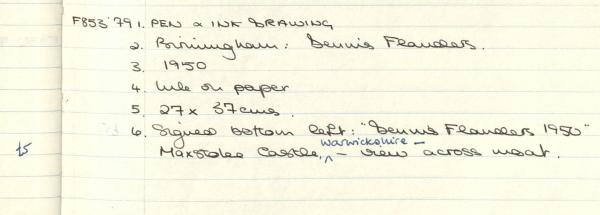 F853'79 1. PEN & INK DRAWING
2. Birmingham: Dennis Flanders.
3. 1950
4. Ink on paper
5. 27 x 37cms.
6. Signed bottom left: "Dennis Flanders 1950"
Warwickshire –
15 Maxstoke Castle, – view across moat.